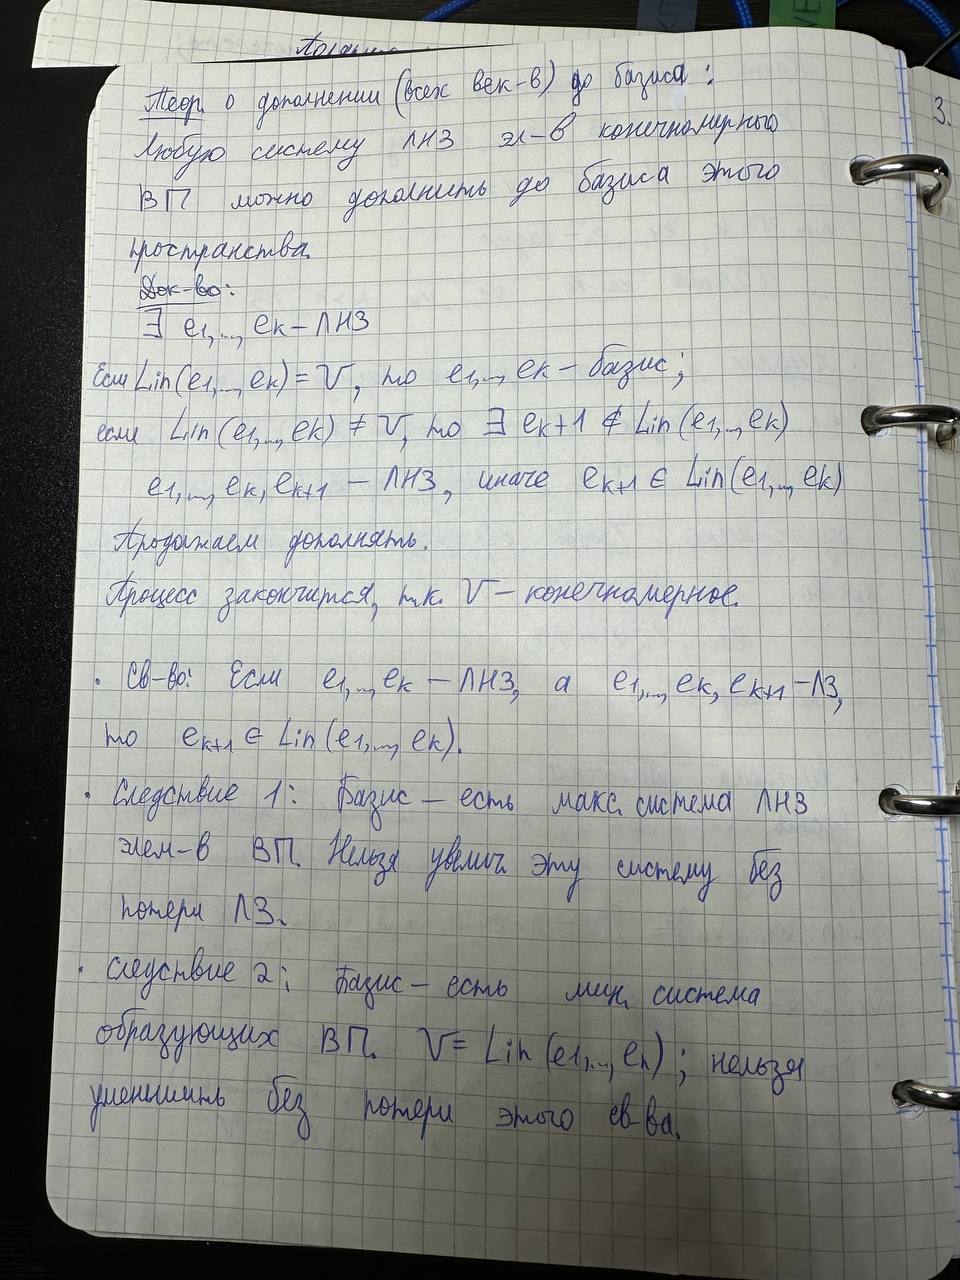 Теор. о дополнении (всех век-в) до базиса:
Любую систему ЛНЗ эл-в конечномерного
ВП можно дополнить до базиса этого
пространства.
Док-во:
∃ e1,...,ek – ЛНЗ
Если Lin(e1,...,ek) = V, то e1,...,ek – базис;
если Lin(e1,...,ek) ≠ V, то ∃ ek+1 ∉ Lin(e1,...,ek)
e1,...,ek,ek+1 – ЛНЗ, иначе ek+1 ∈ Lin(e1,...,ek)
Продолжаем дополнять.
Процесс закончится, т.к. V – конечномерное.
· Св-во: Если e1,...,ek – ЛНЗ, а e1,...,ek,ek+1 – ЛЗ,
то ek+1 ∈ Lin(e1,...,ek).
· Следствие 1: Базис – есть макс. система ЛНЗ
элем-в ВП. Нельзя увелич. эту систему без
потери ЛЗ.
· Следствие 2: Базис – есть мин. система
образующих ВП. V = Lin(e1,...,en); нельзя
уменьшить без потери этого св-ва.
3.